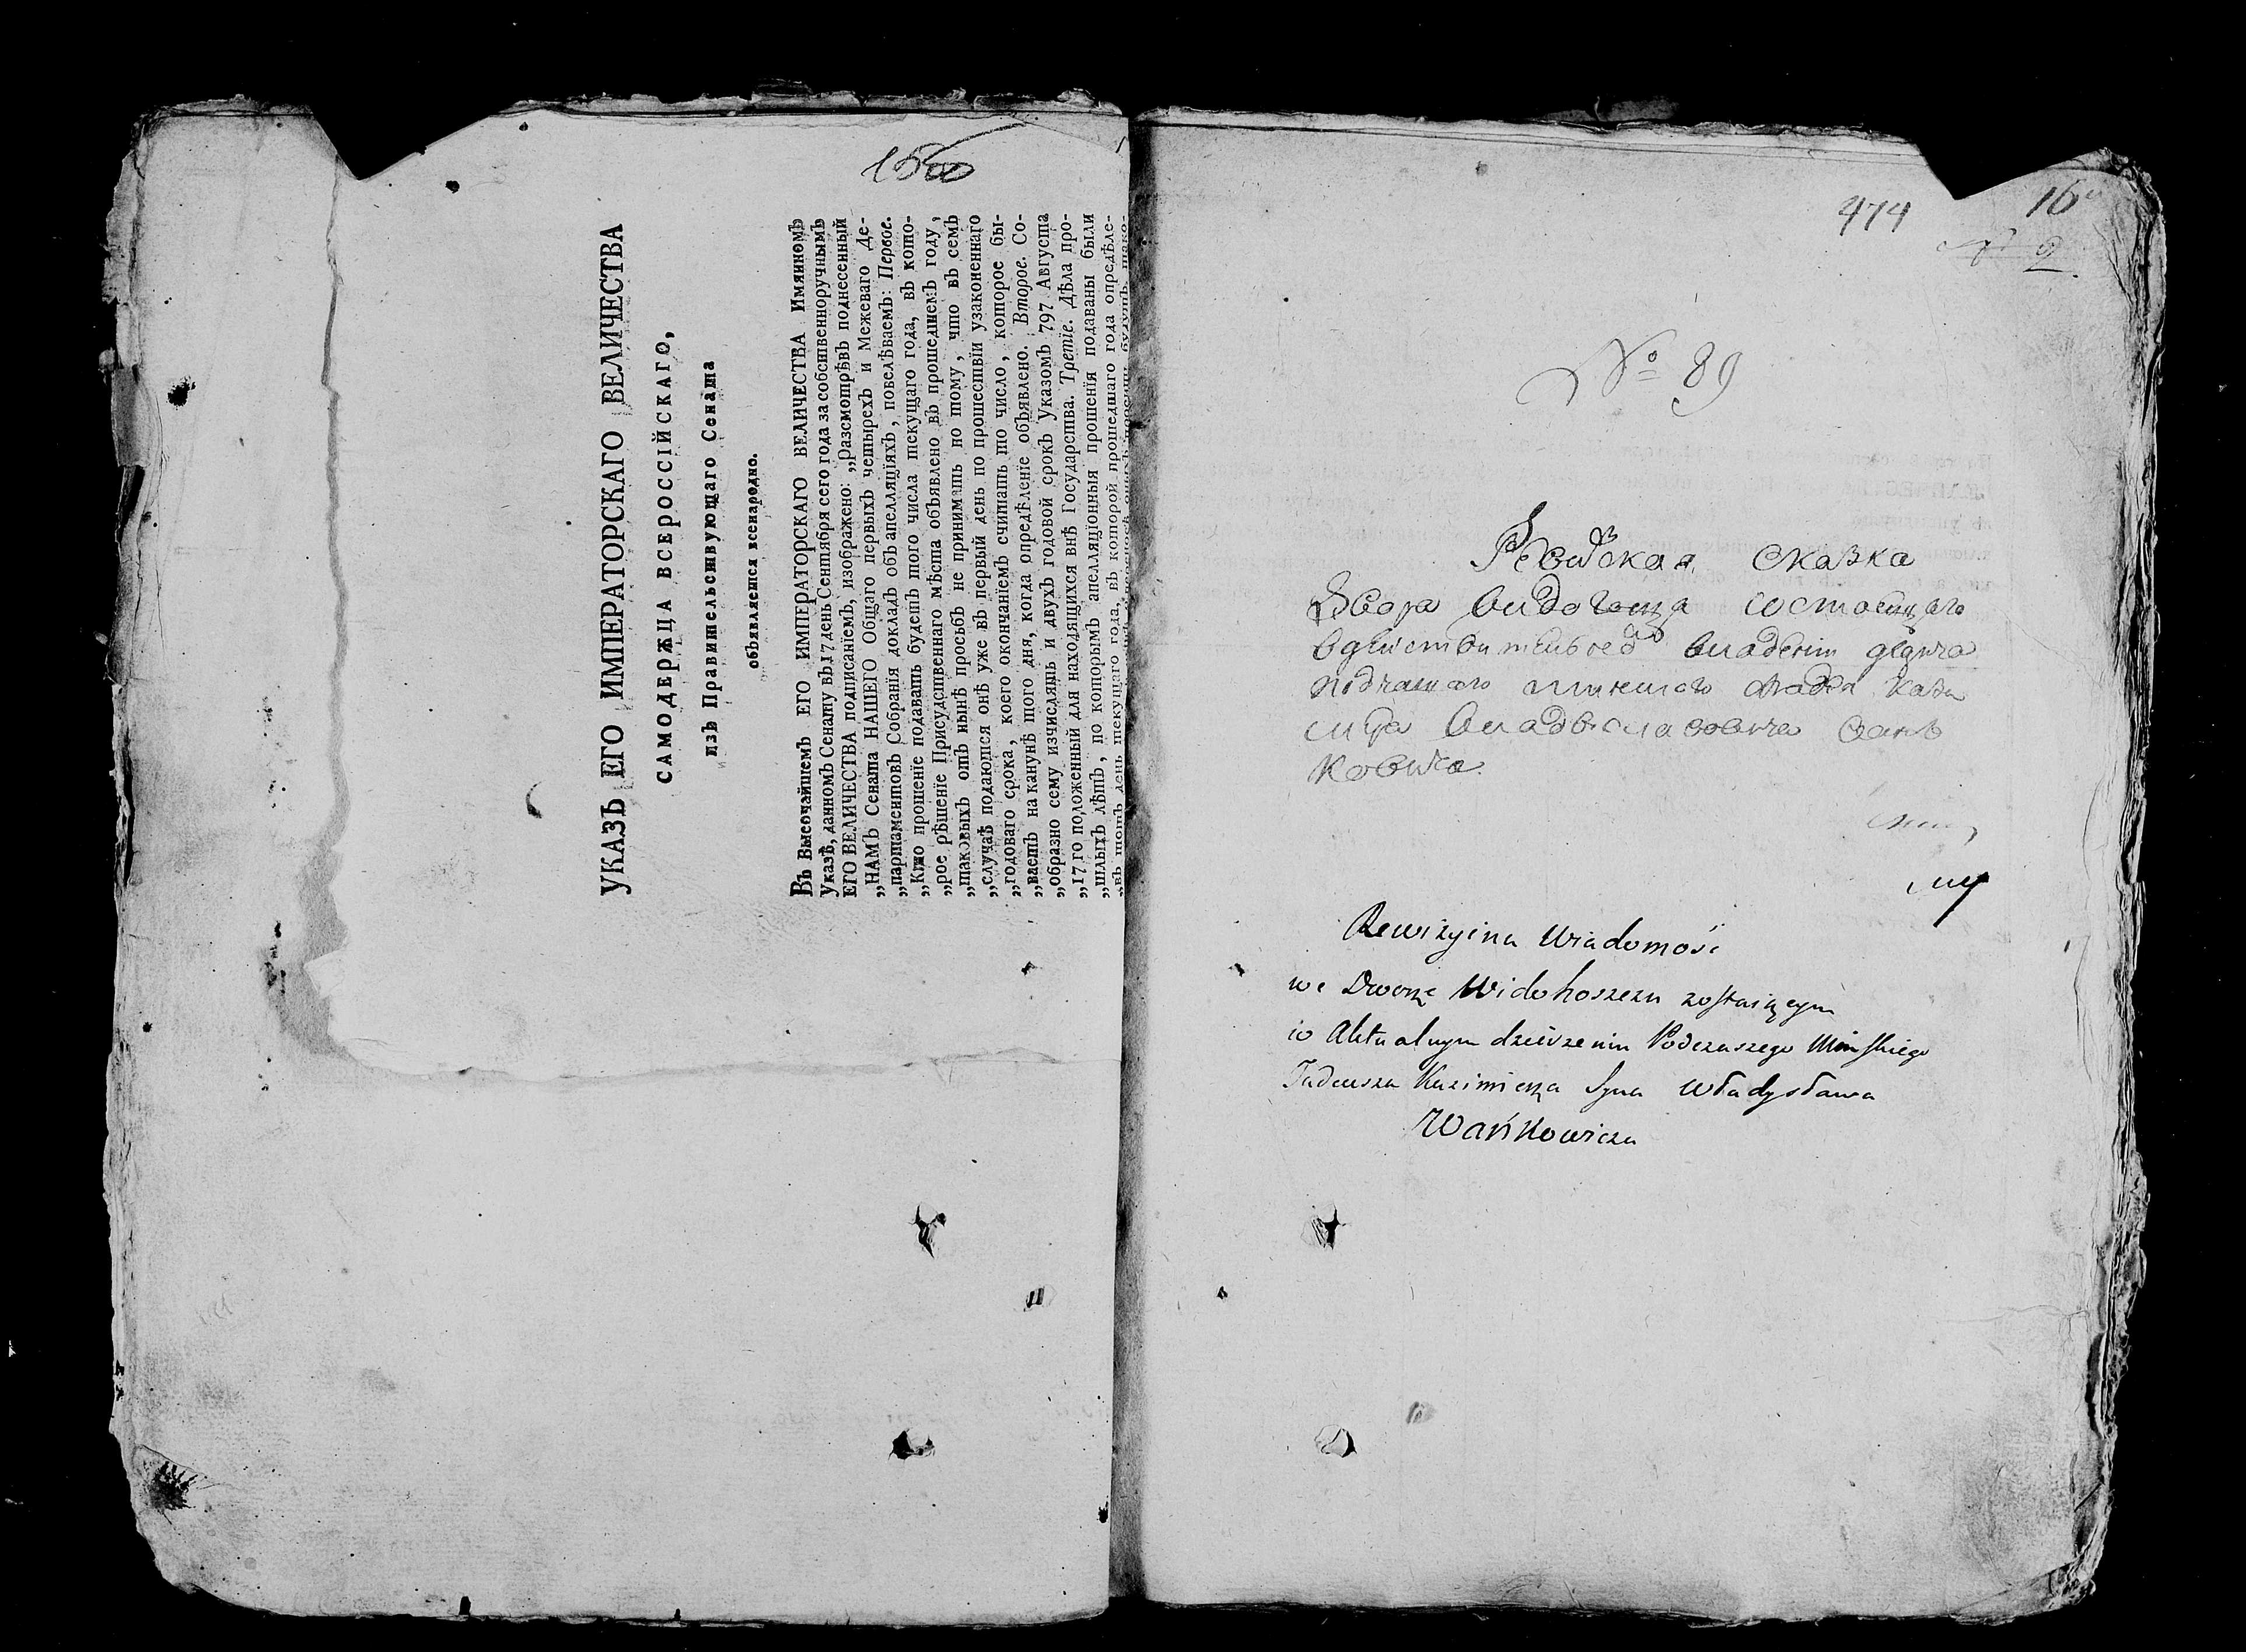 УКАЗЪ ЕГО ИМПЕРАТОРСКАГО ВЕЛИЧЕСТВА
САМОДЕРЖЦА ВСЕРОССІЙСКАГО,
изъ Правительствующаго Сената
объявляется всенародно.
Въ Высочайшемъ ЕГО ИМПЕРАТОРСКАГО ВЕЛИЧЕСТВА Имянномъ
Указѣ, данномъ Сенату въ 17 день Сентября сего года за собственноручнымъ
ЕГО ВЕЛИЧЕСТВА подписаніемъ, изображено: „разсмотрѣвъ поднесенный
„НАМЪ Сената НАШЕГО Общаго первыхъ четырехъ и Межеваго Де-
„партаментовъ Собранія докладъ объ апелляціяхъ, повелѣваемъ: Первое.
„Кто прошеніе подавать будетъ того числа текущаго года, въ кото-
„рое рѣшеніе Присудственнаго мѣста объявлено въ прошедшемъ году,
„таковыхъ отъ нынѣ просьбъ не принимать по тому, что въ семъ
„случаѣ подаются онѣ уже въ первый день по прошествіи узаконеннаго
„годоваго срока, коего окончаніемъ считать то число, которое бы-
„ваетъ на канунѣ того дня, когда опредѣленіе объявлено. Второе. Со-
„образно сему изчислять и двухъ годовой срокъ Указомъ 797 Августа
„17 го положенный для находящихся внѣ Государства. Третіе. Дѣла про-
„шлыхъ лѣтъ, по которымъ апелляціонныя прошенія подаваны были
„въ тотъ день текущаго года, въ которой прошедшаго года опредѣле-
474
16
№ 89
Ревизская сказка
Двора Видогоща состоящаго
владении
подчашаго минского Фадея Кази
мира Владиславовича Ванъ
ковича
Rewizyina Wiadomość
we Dworze Widohoszczu zostaiącym
w Aktualnym dzierżeniu Podczaszego Minskiego
Tadeusza Kazimierza Syna Władysława
Wańkowicza